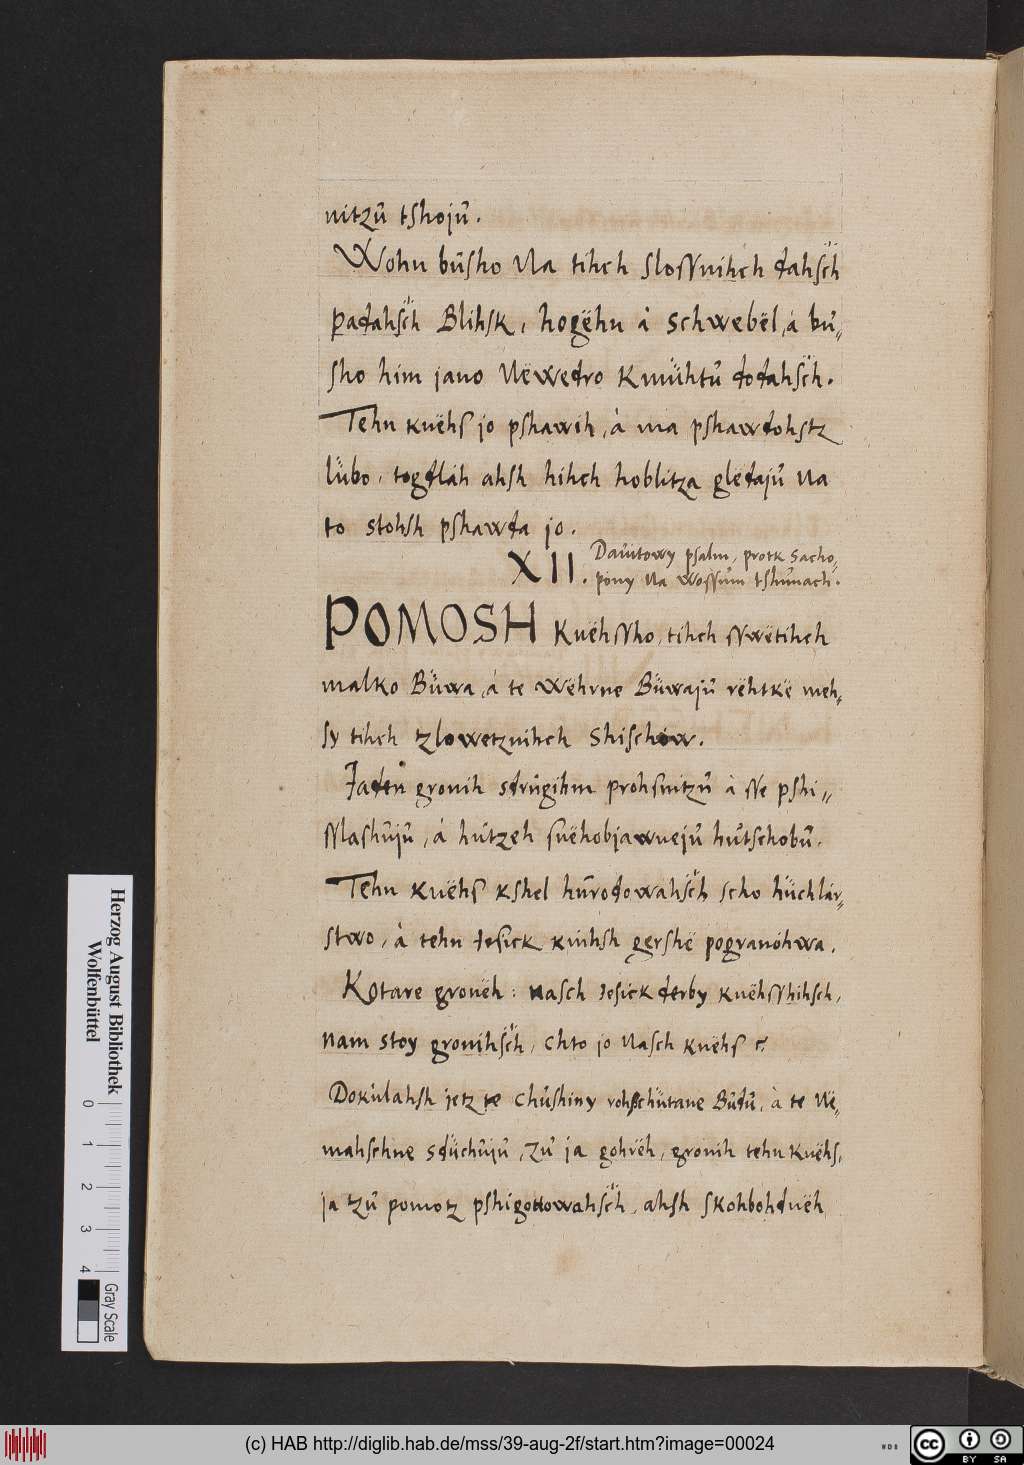 nitzů tshojů.
Wohn bůsho na tihch slossnihch dahsch
padahsch Blihsk, hogëhn á schwebël, á bů=
sho him jano nëwedro kmühtů dodahsch.
Tehn knëhs jo pshawih, á ma pshawdohstz
lübo, togdláh ahsh hihch hoblitza glëdajů na
to stohsh pshawda jo.
XII. Dauitowy psalm, protk sacho=
pony na wossům tshůnach.
POMOSH Knëhssho, tihch sswëtihch
malko Büwa, á te wëhrne Büwajů rëhtkë meh=
sy tihch tzlowetznihch Shischow.
Jaden gronih sdrůgihm prohsnitzů á sse pshi=
sslashůjů, á hútzeh snëhobjawnejů hůtschobů.
Tehn knëhs kshel hůrodowahsch scho hüchlar=
stwo, á tehn Jesick knihsh gershë pogranóhwa.
Kotare gronëh: nasch Jesick derby knëhsshihsch,
nam stoy gronihsch, chto jo nasch knëhs?
Dokůlahsh jetz te chůshiny rohschůtane Bůdů, á te në=
mahschne sdüchůjů, zů ja gohrëh, gronih tehn knëhs,
ja tzů pomotz pshigottowahsch, ahsh skohbohdnëh
Herzog August Bibliothek
Wolfenbüttel
0 1 2 3 4
Gray Scale
(c) HAB http://diglib.hab.de/mss/39-aug-2f/start.htm?image=00024
WDB
cc
BY SA